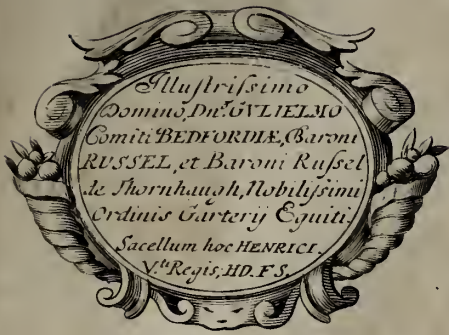 Illustrissimo
Domino, Dn.º GVLIELMO
Comiti BEDFORDIÆ, Baroni
RUSSEL, et Baroni Russel
de Thornhaugh, Nobilissimi
Ordinis Garterij Equiti.
Sacellum hoc HENRICI.
V.ti Regis, HD. F S.